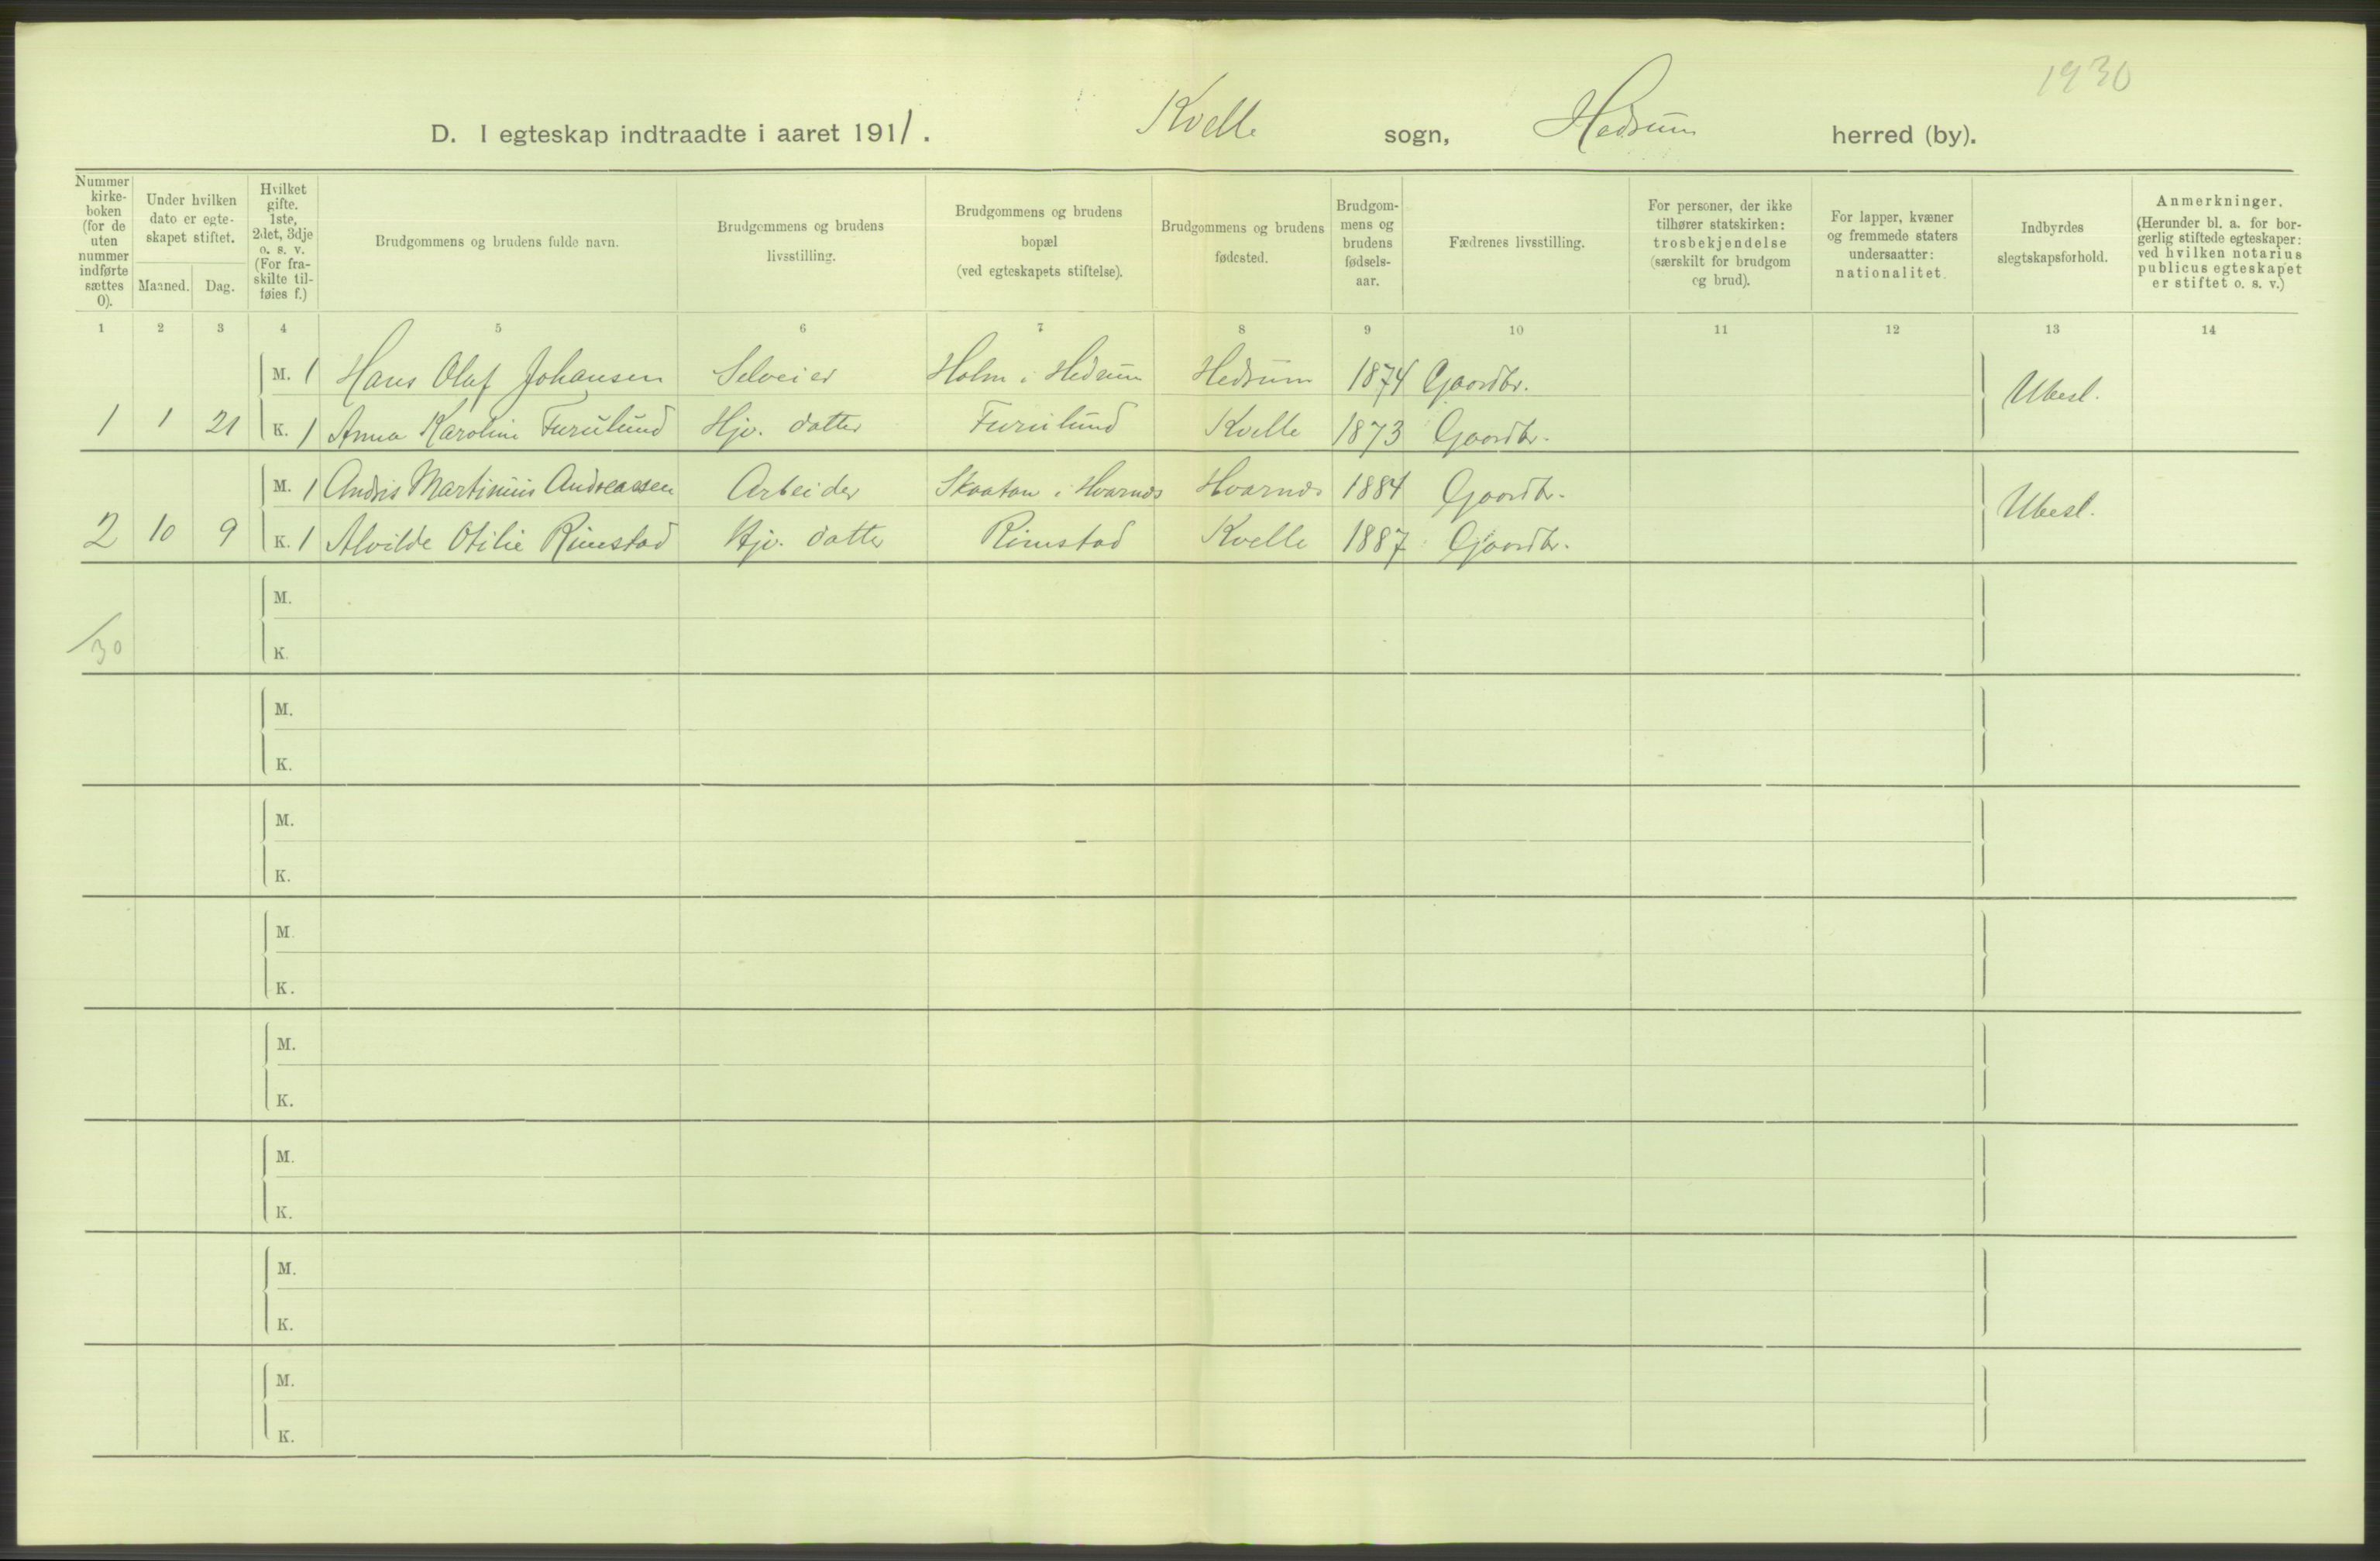 1930
D. I egteskap indtraadte i aaret 1911. Kvelle sogn, Hedrum herred (by).
Nummer kirke-boken (for de uten nummer indførte sættes 0).
Under hvilken dato er egte-skapet stiftet.
Maaned. Dag.
Hvilket gifte. 1ste, 2det, 3dje o. s. v. (For fra-skilte til-føies f.)
Brudgommens og brudens fulde navn.
Brudgommens og brudens livsstilling.
Brudgommens og brudens bopæl (ved egteskapets stiftelse).
Brudgommens og brudens fødested.
Brudgom-mens og brudens fødsels-aar.
Fædrenes livsstilling.
For personer, der ikke tilhører statskirken: trosbekjendelse (særskilt for brudgom og brud).
For lapper, kvæner og fremmede staters undersaatter: nationalitet.
Indbyrdes slegtskapsforhold.
Anmerkninger. (Herunder bl. a. for bor-gerlig stiftede egteskaper: ved hvilken notarius publicus egteskapet er stiftet o. s. v.)
1 2 3 4 5 6 7 8 9 10 11 12 13 14
M. 1 Hans Olaf Johansen Selveier Holm i Hedrum Hedrum 1874 Gaardbr. Ubesl.
1 1 21 K. 1 Anna Karoline Furulund Hjv. datter Furulund Kvelle 1873 Gaardbr.
M. 1 Andris Martinius Andreassen Arbeider Skaatan i Hvarnes Hvarnes 1884 Gaardbr. Ubesl.
2 10 9 K. 1 Alvilde Otilie Rimstad Hjv. datter Rimstad Kvelle 1887 Gaardbr.
M.
/30 K.
M.
K.
M.
K.
M.
K.
M.
K.
M.
K.
M.
K.
M.
K.